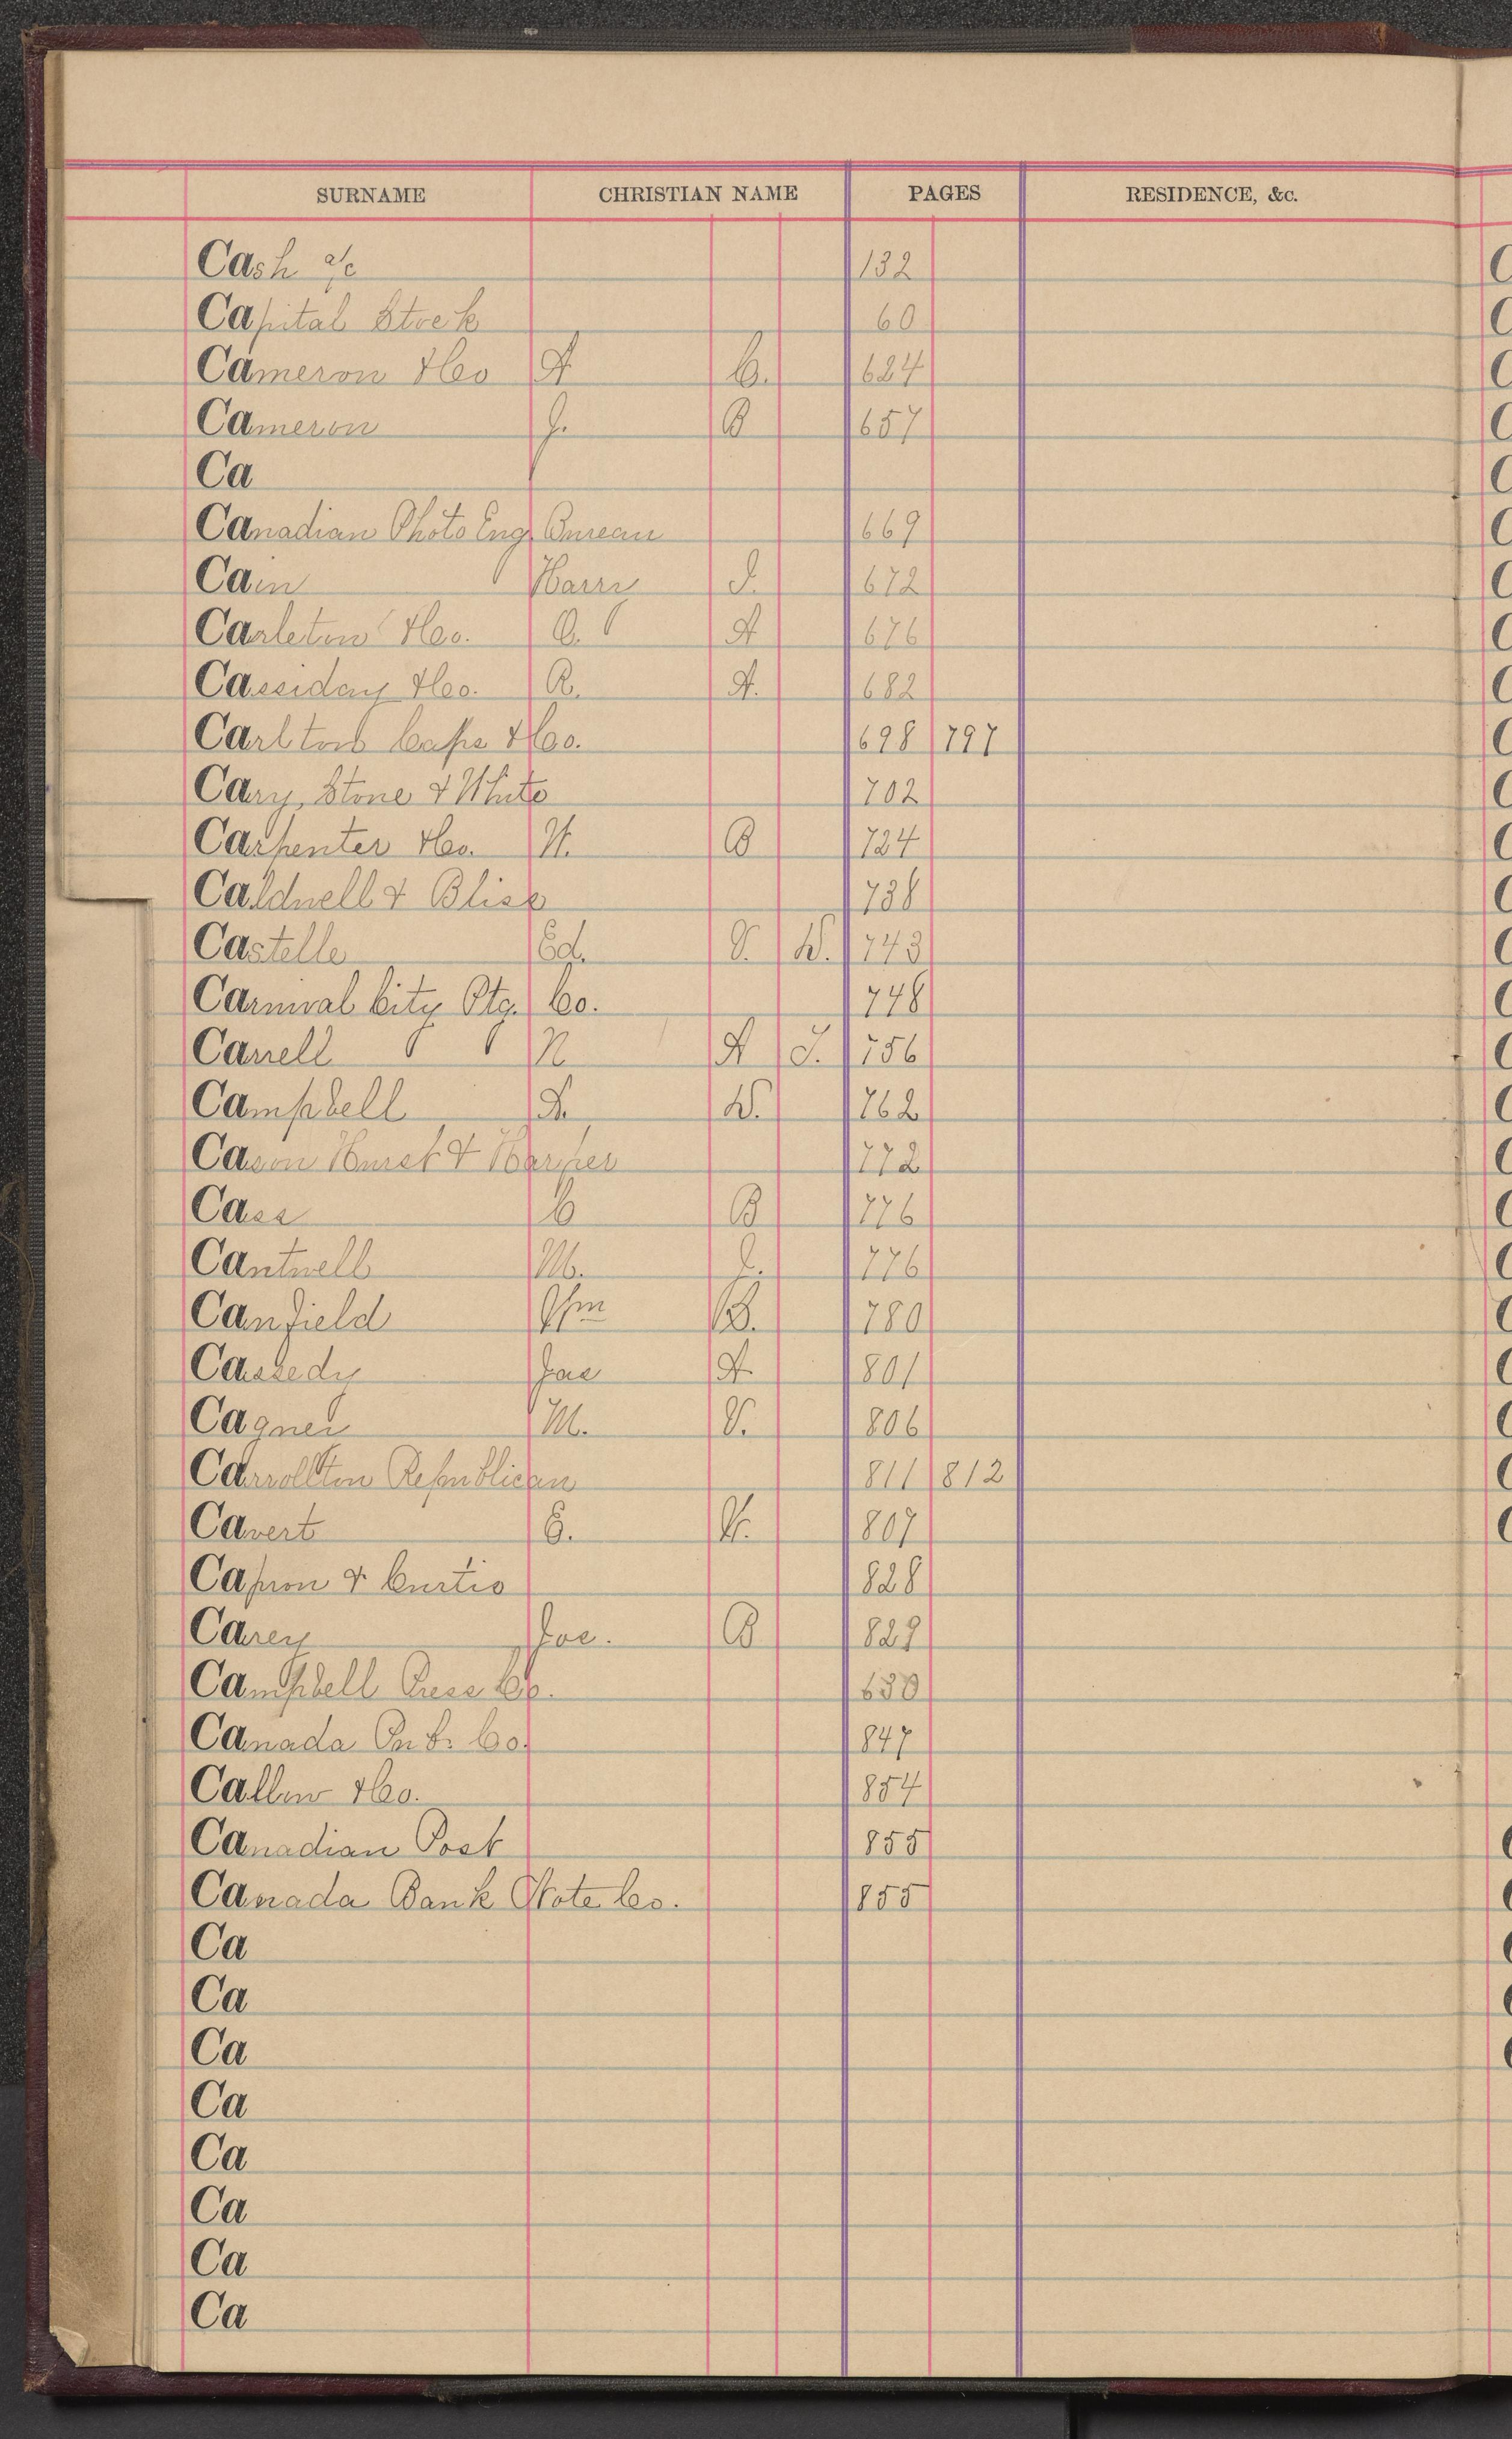 SURNAME CHRISTIAN NAME PAGES RESIDENCE, &c.
Cash a/c 132
Capital Stock 60
Cameron & Co A C. 624
Cameron J. B 657
Ca
Canadian Photo Eng. Bureau 669
Cain Harry J. 672
Carleton & Co. O. A 676
Cassiday & Co. R. A. 682
Carlton Cape & Co. 698 797
Cary, Stone & White 702
Carpenter & Co. W. B 724
Caldwell & Bliss 738
Castelle Ed. V. W. 743
Carnival City Ptg. Co. 748
Carrell N A J. 756
Campbell L. W. 762
Cason Hurst & Harper 772
Cass C B 776
Cantwell M. J. 776
Canfield Wm B. 780
Cassedy Jas A. 801
Cagner M. V. 806
Carrollton Republican 811 812
Cavert E. V. 807
Capron & Curtis 828
Carey Joe. B 829
Campbell Press Co. 630
Canada Pub. Co. 847
Callow & Co. 854
Canadian Post 855
Canada Bank Note Co. 855
Ca
Ca
Ca
Ca
Ca
Ca
Ca
Ca